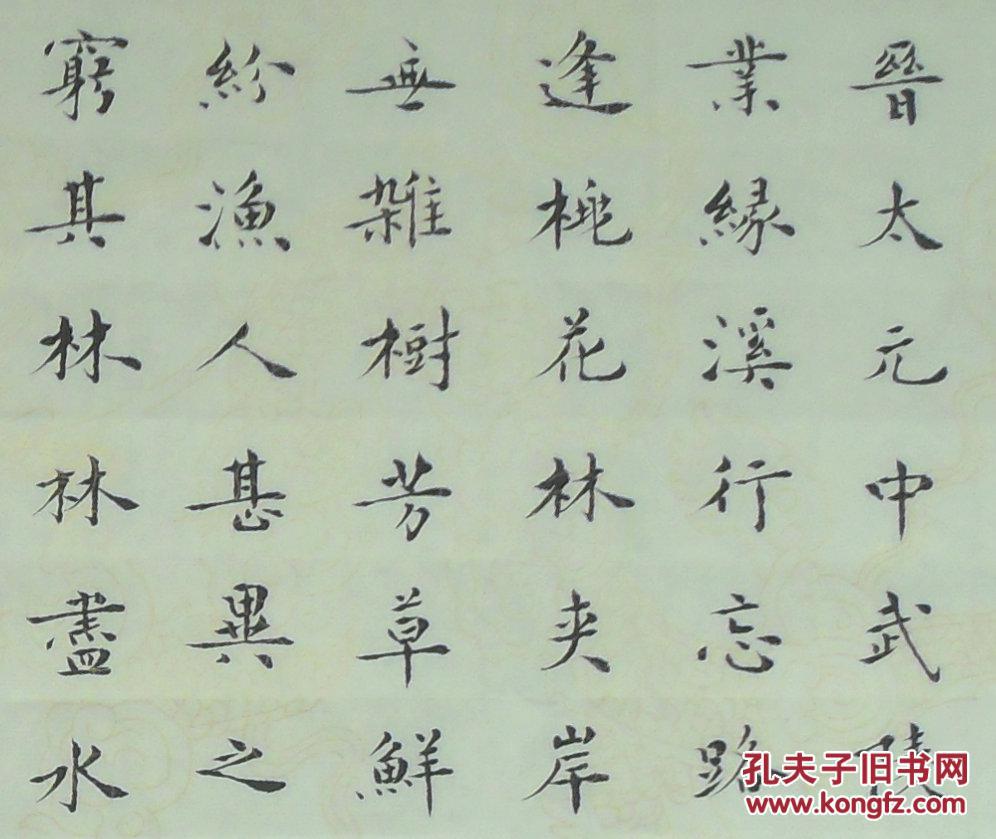 晉太元中武陵
業緣溪行忘路
逢桃花林夾岸
無雜樹芳草鮮
紛漁人甚異之
窮其林林盡水
孔夫子旧书网
www.kongfz.com